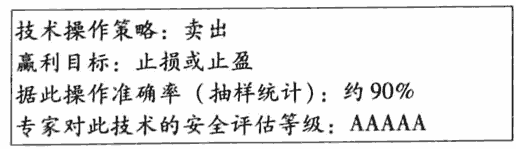 技术操作策略：卖出
赢利目标：止损或止盈
据此操作准确率（抽样统计）：约90%
专家对此技术的安全评估等级：AAAAA